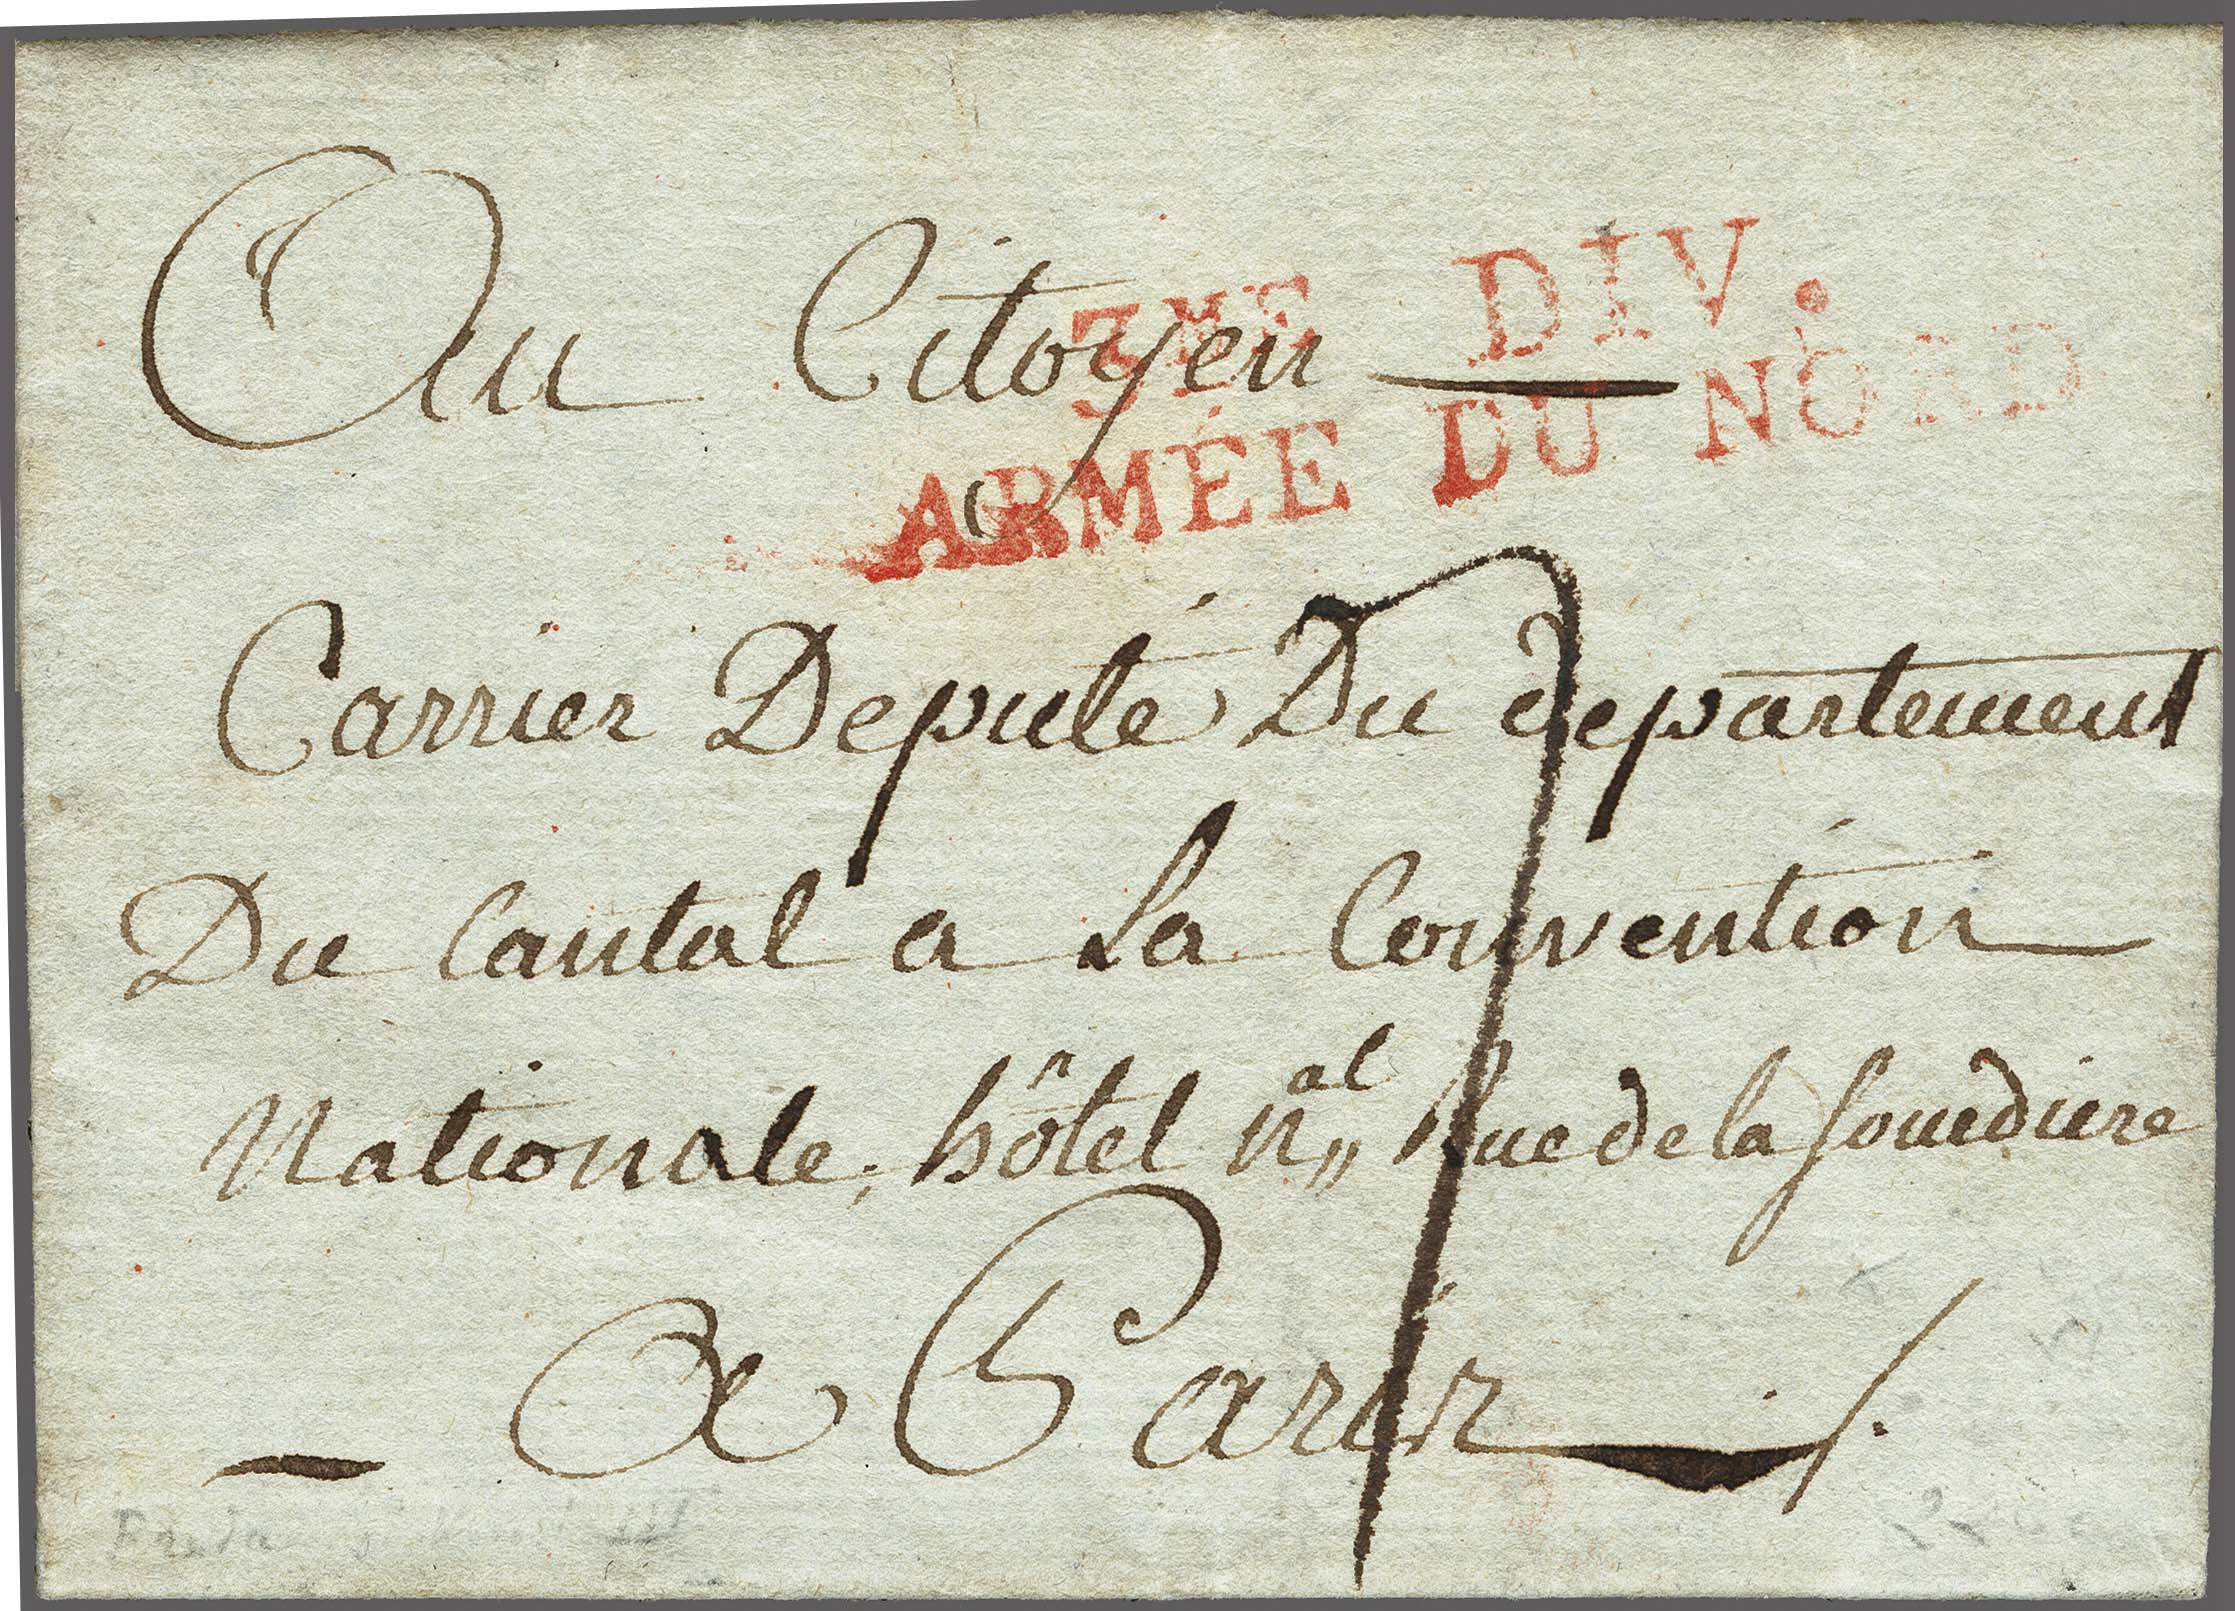 Au Citoyen
3ME DIV.
ARMÉE DU NORD
Carrier Deputé Du departement
Du Cantal a La Convention
Nationale, hôtel n.al Rue de la Sourdiere
A Paris
7